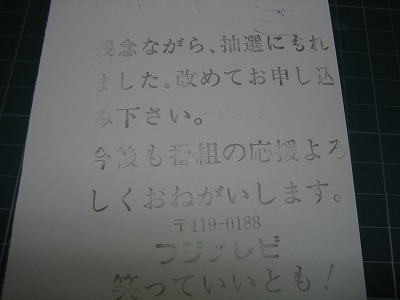 残念ながら、抽選にもれ
ました。改めてお申し込
み下さい。
今後も番組の応援よろ
しくおねがいします。
〒119-0188
フジテレビ
笑っていいとも!